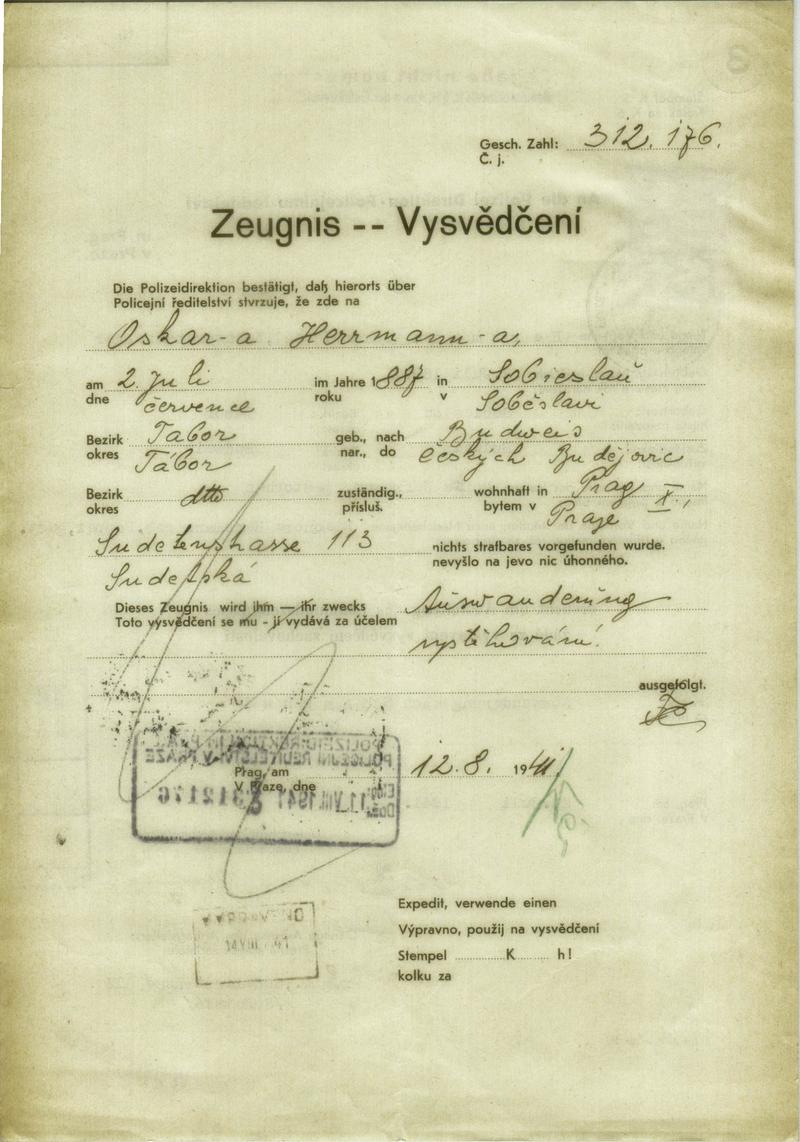 Gesch. Zahl: 312.176.
Č. j.
Zeugnis -- Vysvědčení
Die Polizeidirektion bestätigt, daß hierorts über
Policejní ředitelství stvrzuje, že zde na
Oskar-a Herrmann-a,
am 2. Juli im Jahre 1887 in Sobieslau
dne července roku v Soběslavi
Bezirk Tabor geb., nach Budweis
okres Tábor nar., do českých Budějovic
Bezirk dtto zuständig., wohnhaft in Prag X.,
okres přísluš. bytem v Praze
Sudetenstrasse 113 nichts strafbares vorgefunden wurde.
Sudetská nevyšlo na jevo nic úhonného.
Dieses Zeugnis wird ihm — ihr zwecks Auswanderung
Toto vysvědčení se mu - jí vydává za účelem vystěhování.
ausgefolgt.
POLIZEIDIREKTION IN PRAG
POLICEJNÍ ŘEDITELSTVÍ V PRAZE
Prag, am 12.8. 1941
V Praze, dne
11. VIII. 1941 312176
14 VIII 41
Expedit, verwende einen
Výpravno, použij na vysvědčení
Stempel K h!
kolku za